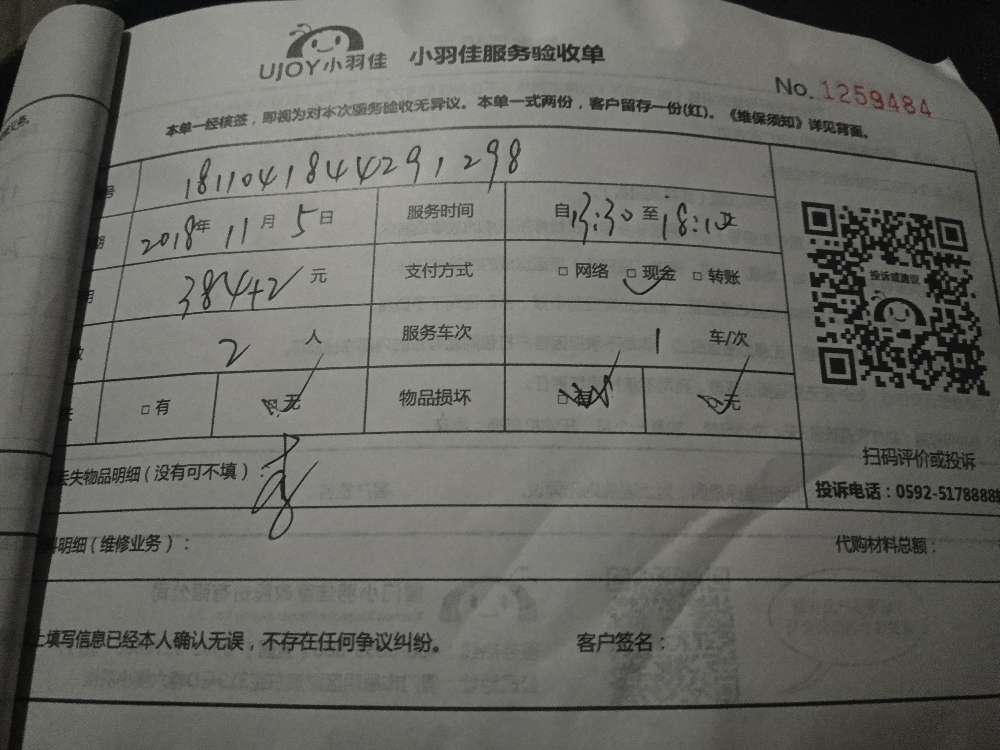 UJOY小羽佳 小羽佳服务验收单
No. 1259484
本单一经核签，即视为对本次服务验收无异议。本单一式两份，客户留存一份(红)。《维保须知》详见背面。
号 181104184429 1298
期 2018年 11月 5日 服务时间 自13:30至18:10
元 支付方式 □ 网络 □ 现金 □ 转账
数 2 人 服务车次 1 车/次
□ 有 □ 无 物品损坏 □ 有 □ 无
投诉或建议
扫码评价或投诉
投诉电话：0592-5178888
丢失物品明细（没有可不填）：
料明细（维修业务）： 代购材料总额：
上填写信息已经本人确认无误，不存在任何争议纠纷。 客户签名：